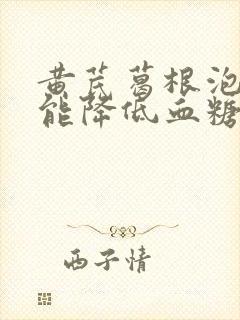 黄芪葛根泡
能降低血糖
西子情